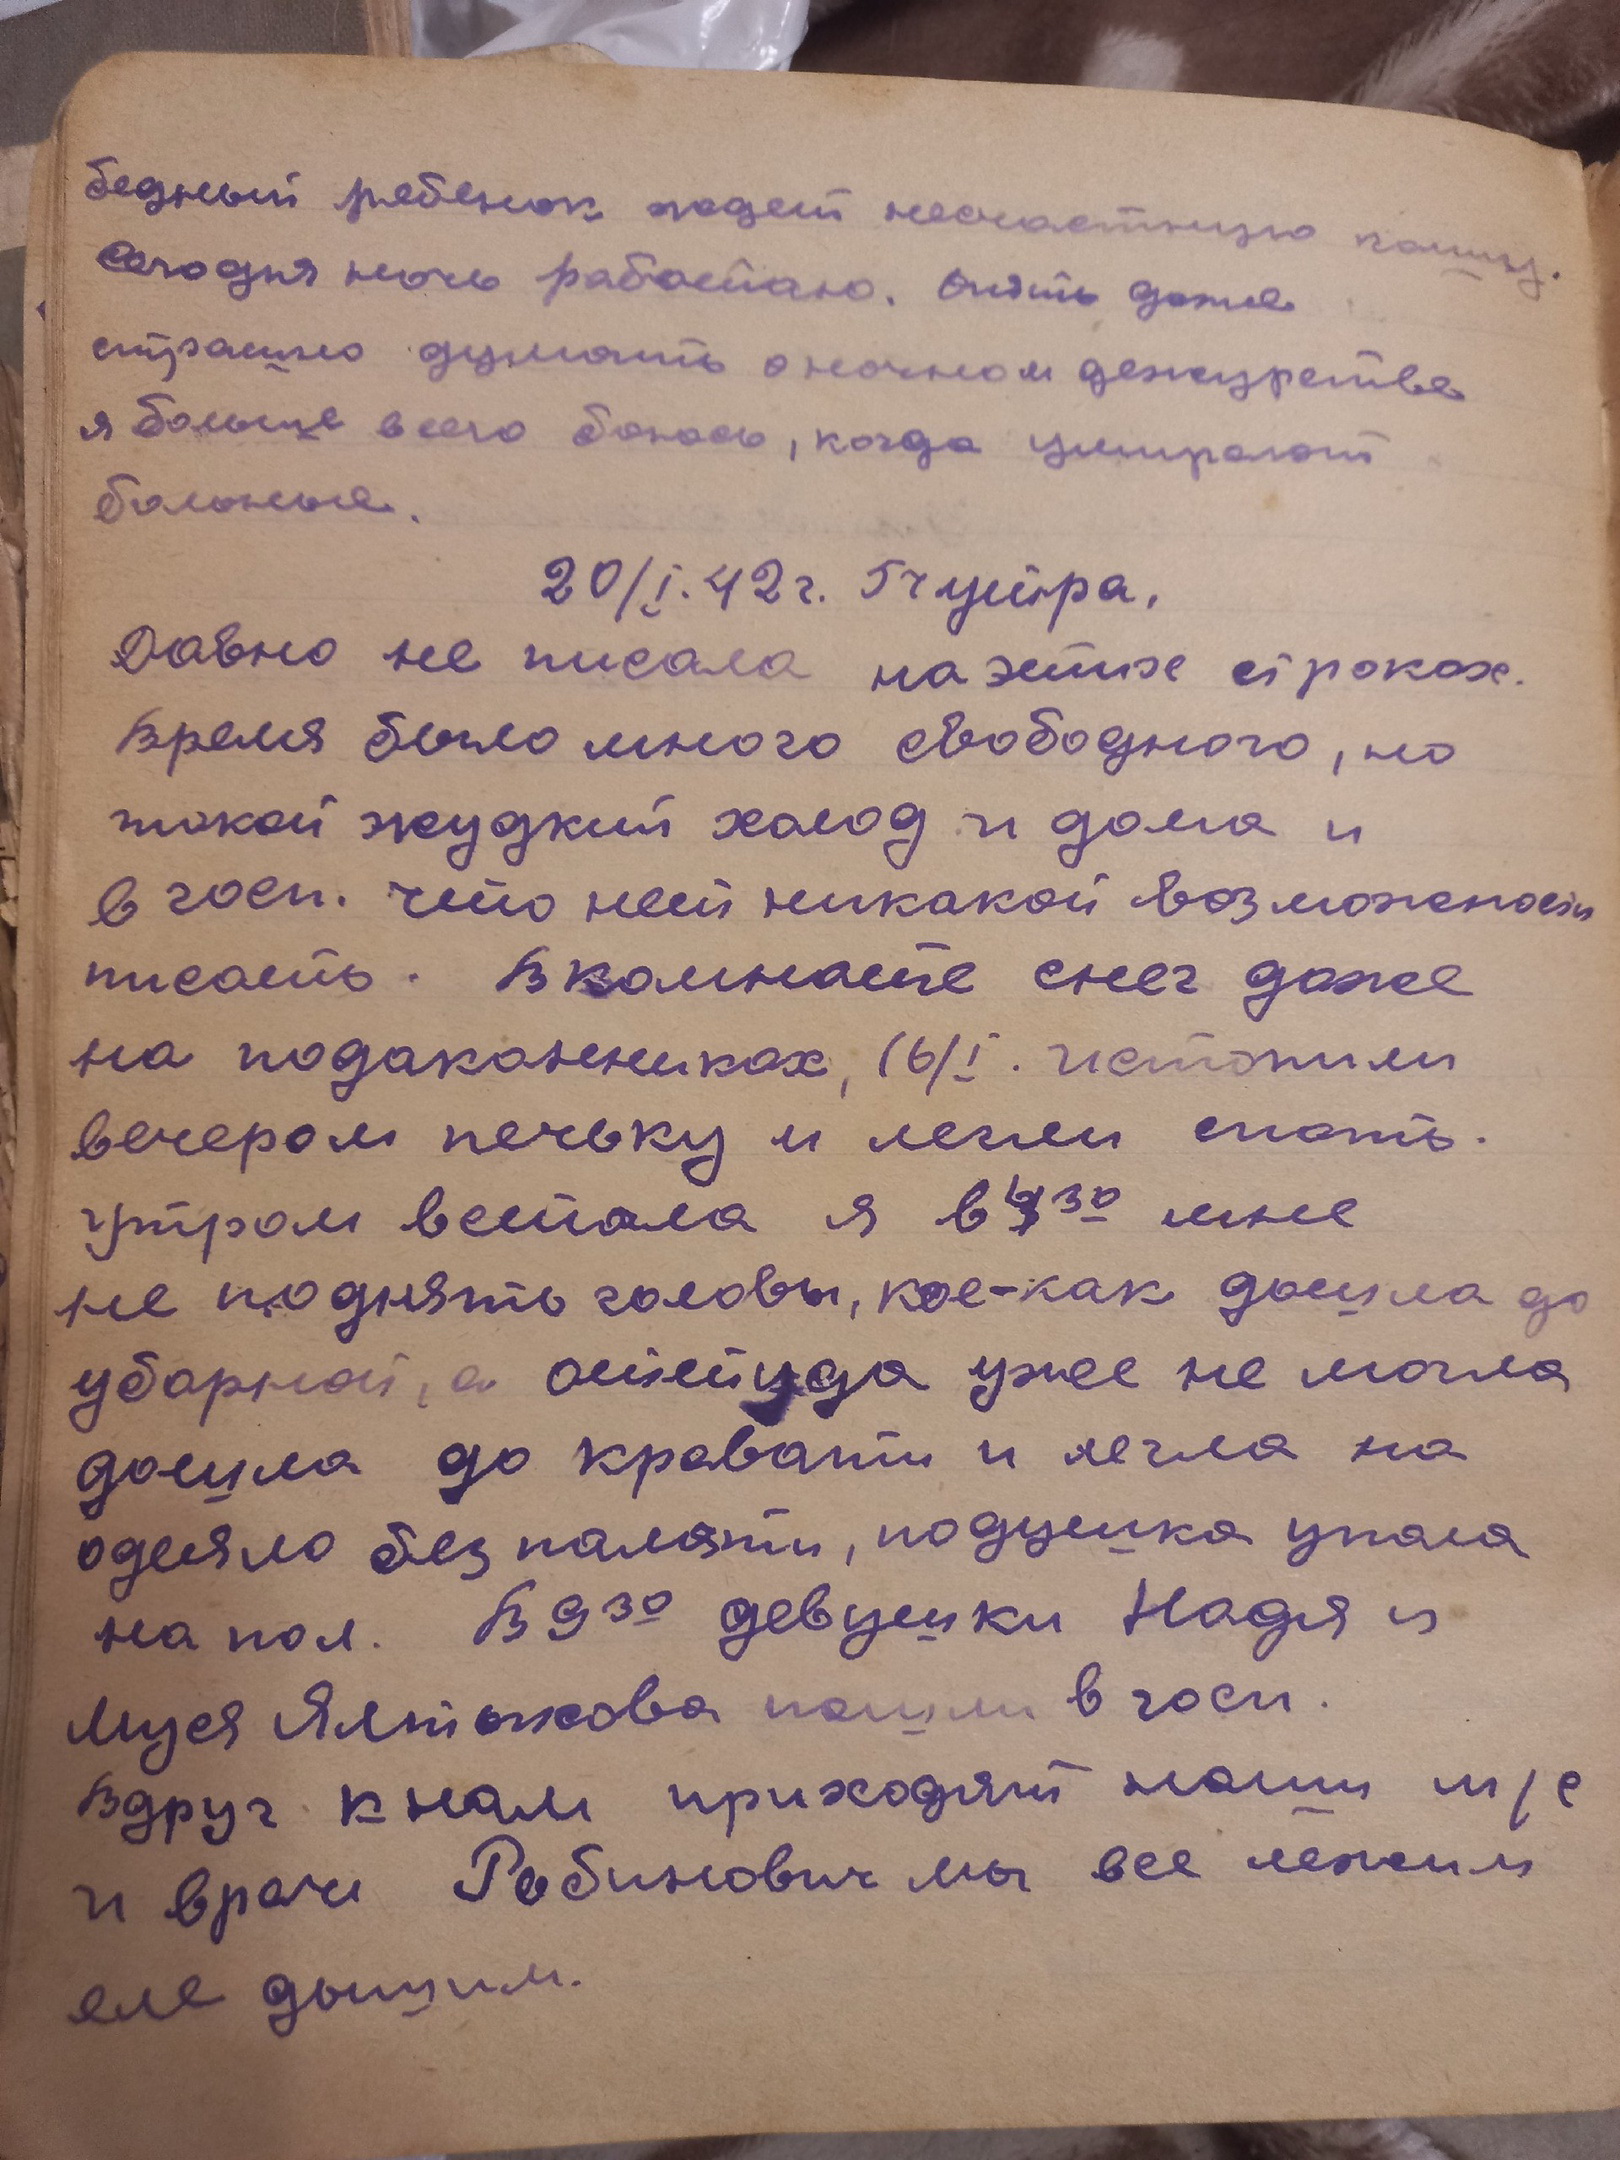 бедный ребенок ждет несчастную кашу.
Сегодня ночь работаю. Опять даже
страшно думать о ночном дежурстве
я больше всего боюсь, когда умирают
больные.
20/I.42 г. 5 ч утра.
Давно не писала на этих строках.
Время было много свободного, но
такой жудкий холод и дома и
в госп. что нет никакой возможности
писать. В комнате снег даже
на подаконниках, 16/I. истопили
вечером печьку и легли спать.
утром встала я в 30 мне
не поднять головы, кое-как дошла до
убарной, а оттуда уже не могла
дошла до кравати и легла на
одеяло без памяти, подушка упала
на пол. В 9 30 девушки Надя и
Муся пошли в госп.
Вдруг к нам приходят наши м/с
и врачи Рабинович мы все лежим
еле дышим.